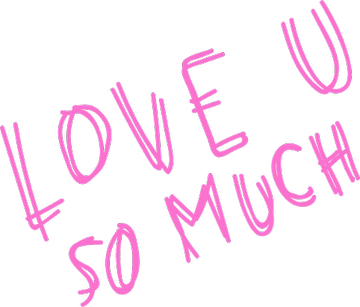 LOVE U
SO MUCH